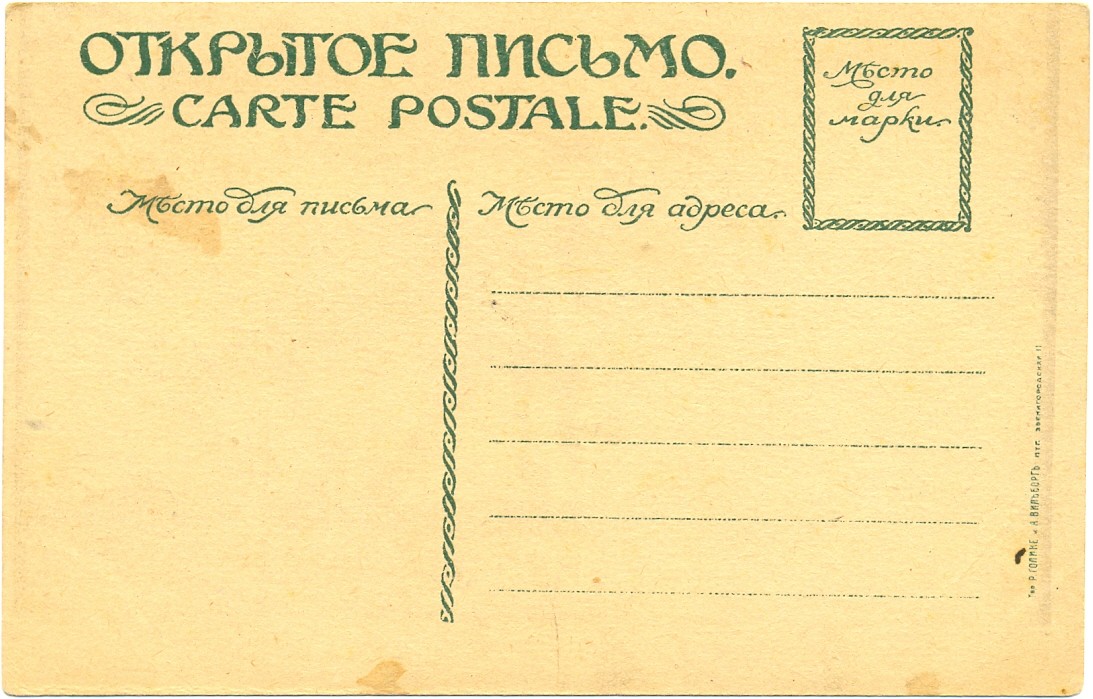 ОТКРЫТОЕ ПИСЬМО.
CARTE POSTALE.
Мѣсто
для
марки.
Мѣсто для письма
Мѣсто для адреса.
Тов. Р. ГОЛИКЕ и А. ВИЛЬБОРГЪ. ПТГ. ЗВЕНИГОРОДСКАЯ 11